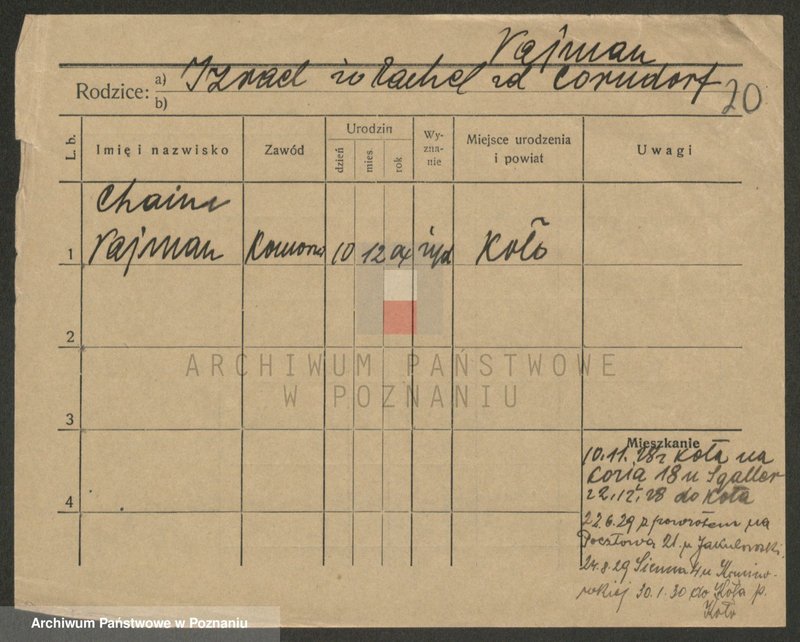 Vajman
Rodzice: a) Izrael i Rachel zd Corndorf 20
b)
L. b. Imię i nazwisko Zawód Urodzin dzień mies. rok Wy-zna-nie Miejsce urodzenia i powiat Uwagi
Chaim
1 Vajman 10 12 żyd Koło
2
ARCHIWUM PAŃSTWOWE
W POZNANIU
3
4
Mieszkanie
10.11.28 z Koła na
Kozia 18 u Sgaller
22.12.28 do Koła
22.6.29 z powrotem na
Pocztowa 21 u Jakubowski
24.8.29 Sienna 4 u
30.1.30 do Koła p.
Koło
Archiwum Państwowe w Poznaniu